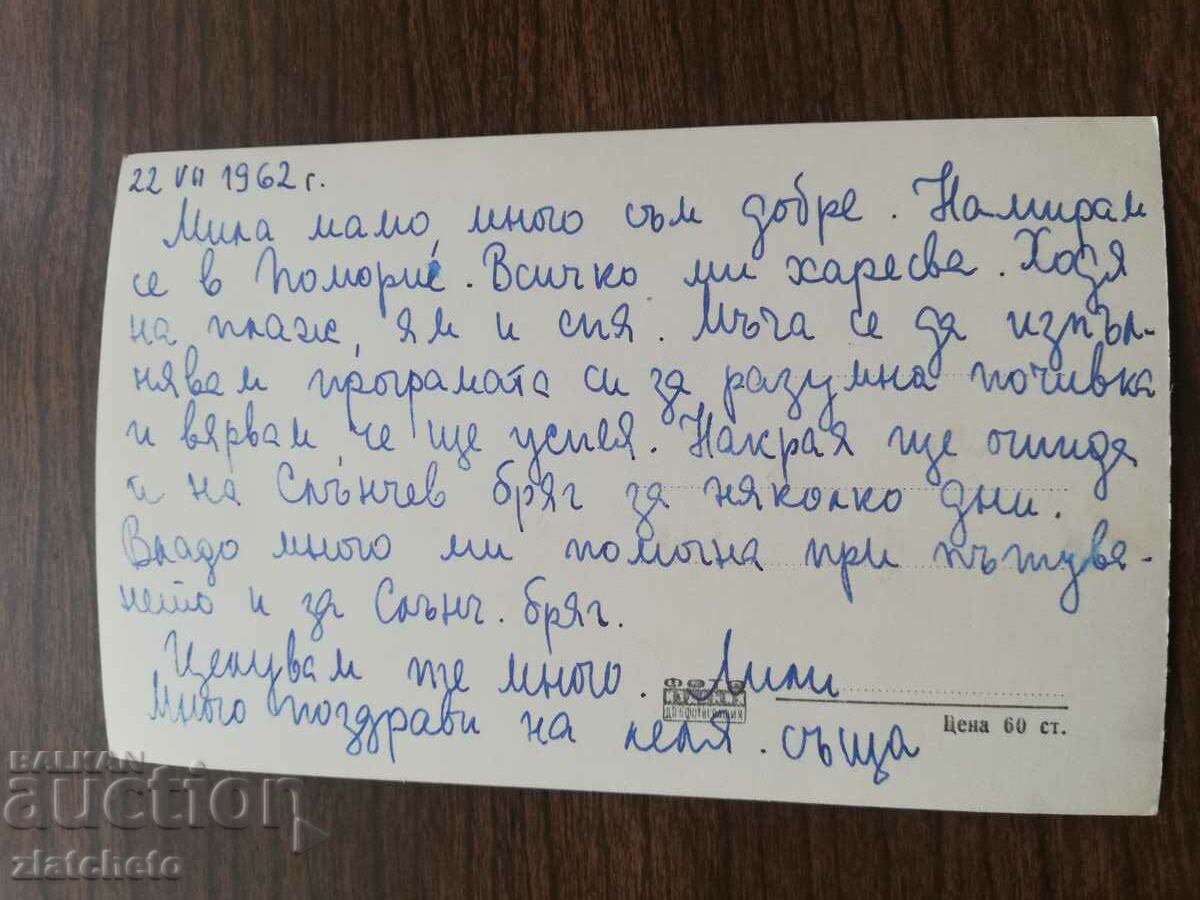 22 VII 1962 г.
Мила мамо, много съм добре. Намирам
се в Поморие. Всичко ми харесва. Ходя
на плаж, ям и спя. Мъча се да изпъл-
нявам програмата си за разумна почивка
и вярвам, че ще успея. Накрая ще отида
и на Слънчев бряг за няколко дни.
Владо много ми помогна при пътува-
нето и за Слънч. бряг.
Целувам те много. Лили
Много поздрави на леля. Съща
Цена 60 ст.
BALKAN
auction
zlatcheto